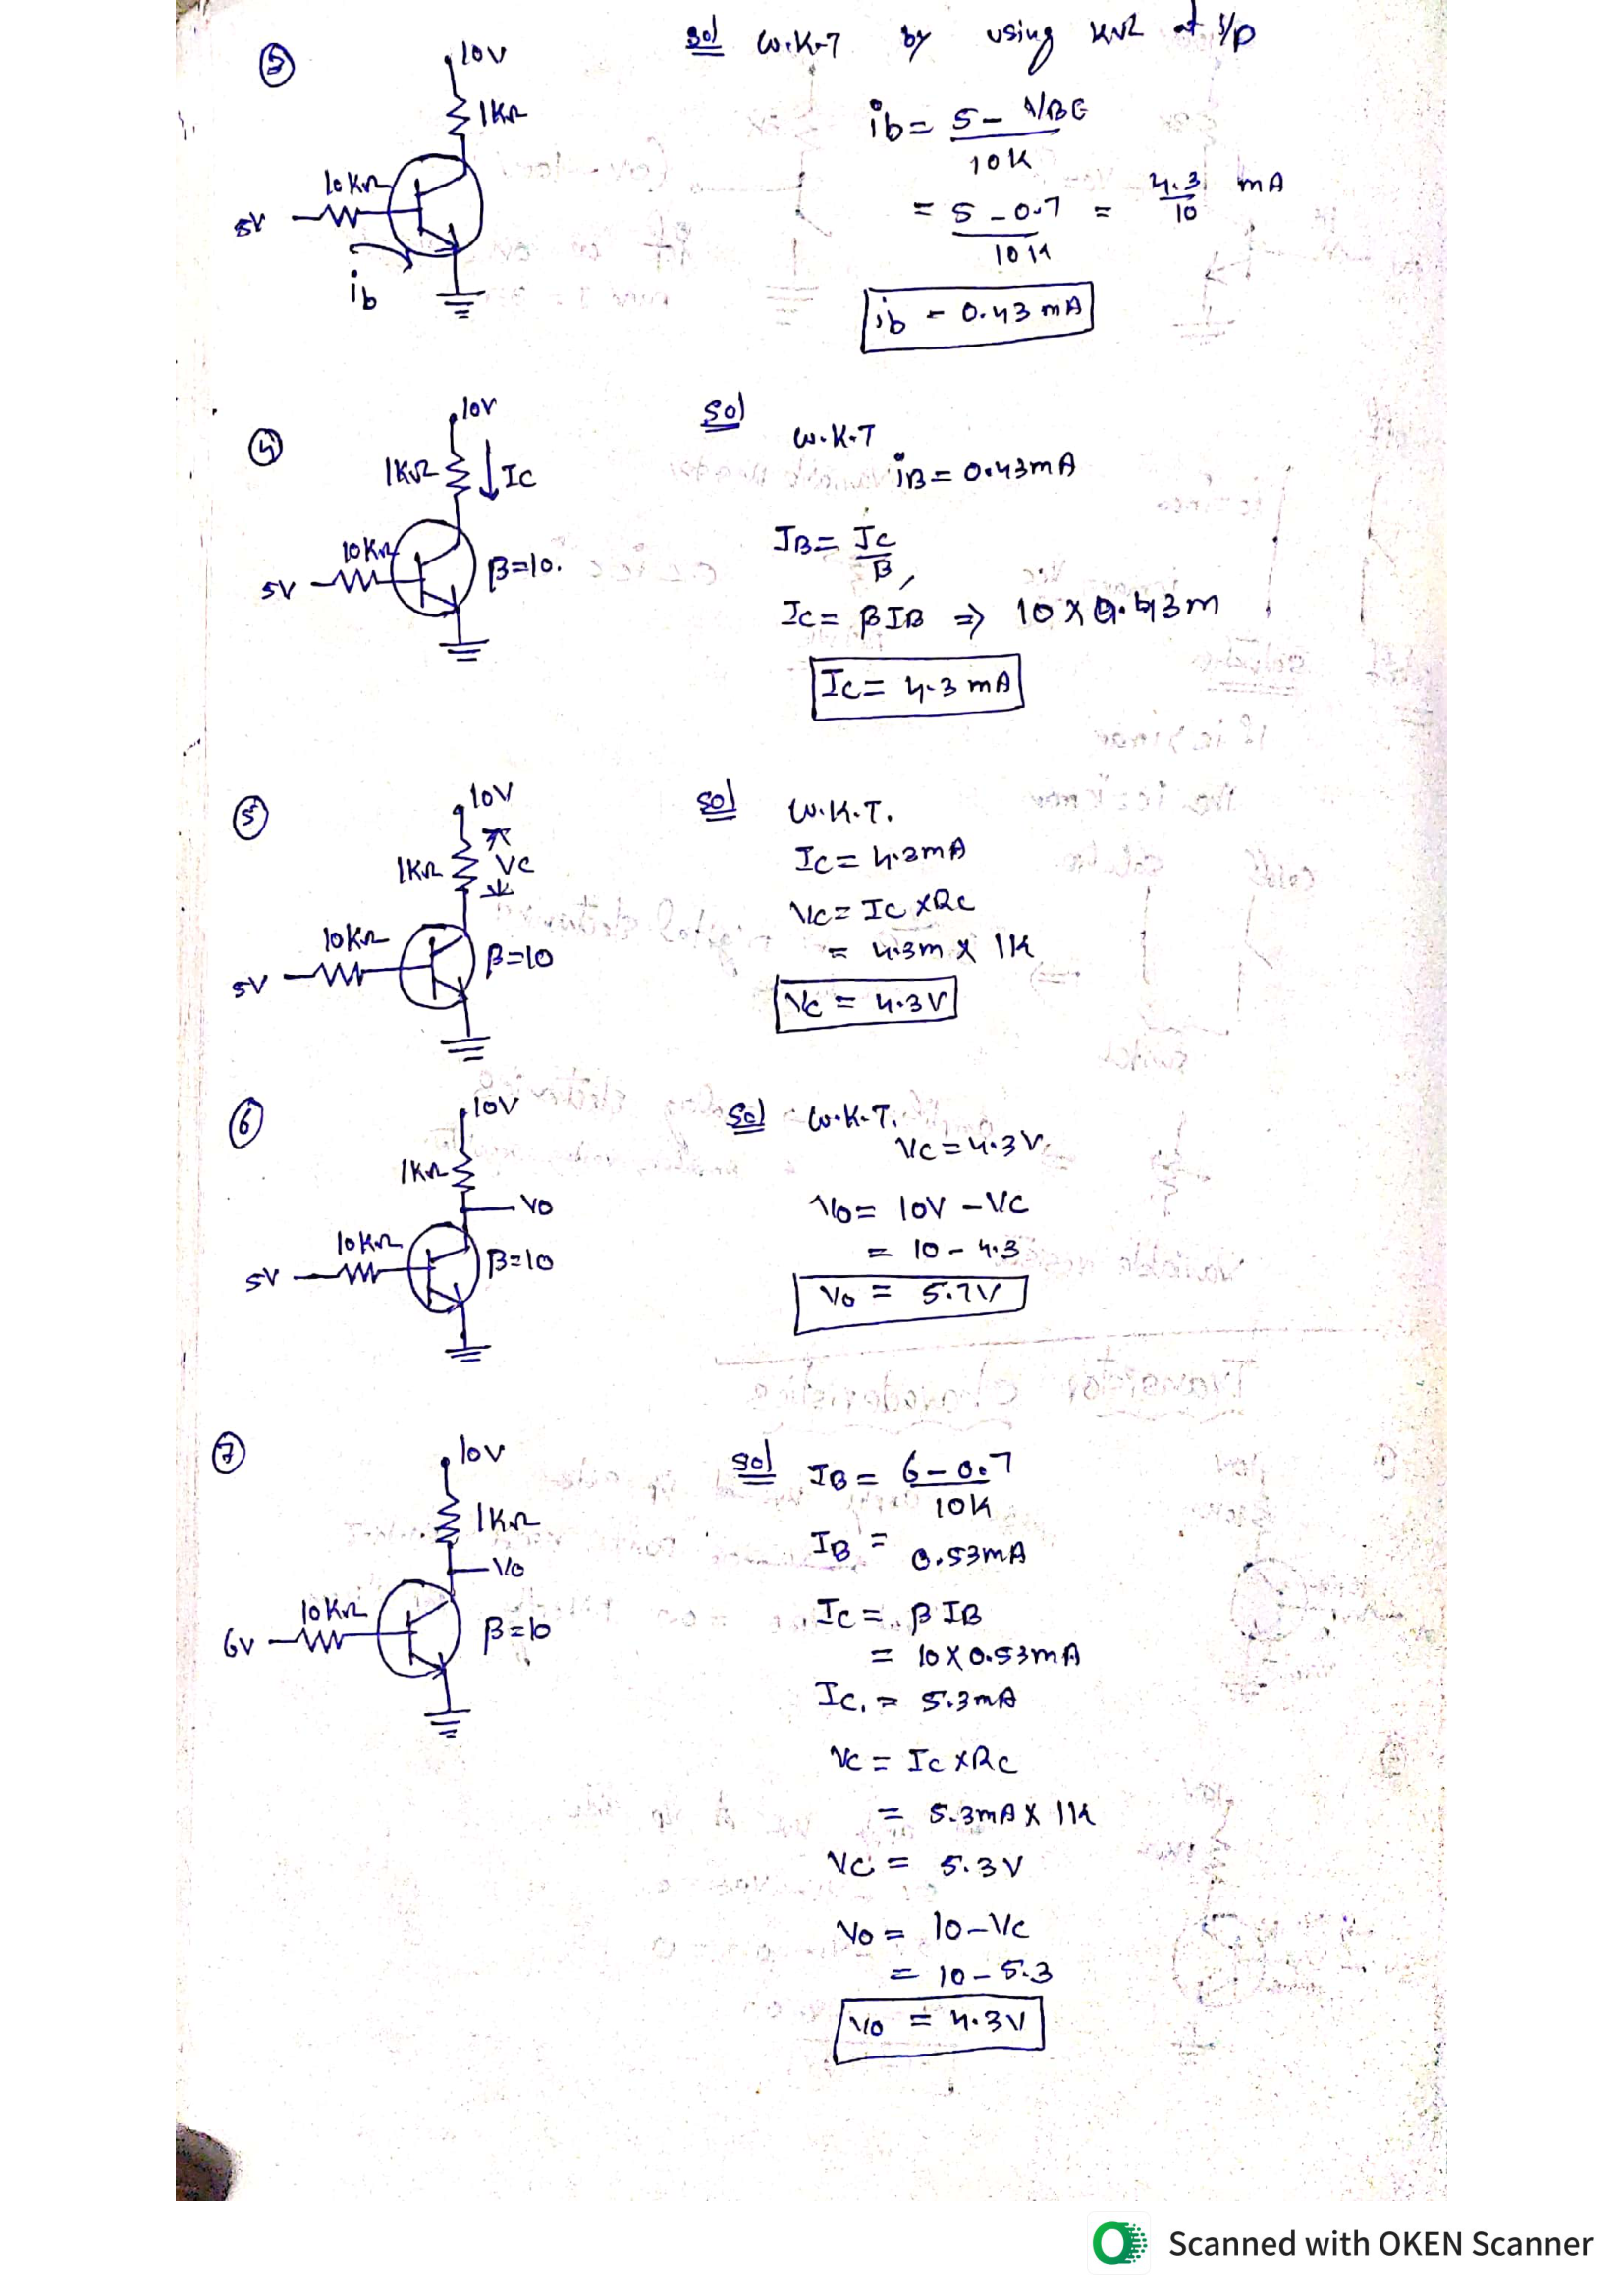 ③
10V
1KΩ
10KΩ
5V
ib
Sol W.K.T by using KVL at I/P
ib = 5 - VBE
10K
= 5 - 0.7 = 4.3 mA
10K 10
ib = 0.43 mA
④
10V
1KΩ IC
10KΩ
5V
β=10.
Sol
W.K.T
iB = 0.43mA
IB = IC
β
IC = βIB ⇒ 10 X 0.43m
IC = 4.3 mA
⑤
10V
1KΩ VC
10KΩ
5V
β=10
Sol W.K.T.
IC = 4.3mA
VC = IC X RC
= 4.3m X 1K
VC = 4.3V
⑥
10V
1KΩ
VO
10KΩ
5V
β=10
Sol W.K.T.
VC = 4.3V.
VO = 10V - VC
= 10 - 4.3
VO = 5.7V
⑦
10V
1KΩ
VO
10KΩ
6V
β=10
Sol IB = 6 - 0.7
10K
IB = 0.53mA
IC = β IB
= 10 X 0.53mA
IC = 5.3mA
VC = IC X RC
= 5.3mA X 1K
VC = 5.3V
VO = 10 - VC
= 10 - 5.3
VO = 4.3V
Scanned with OKEN Scanner